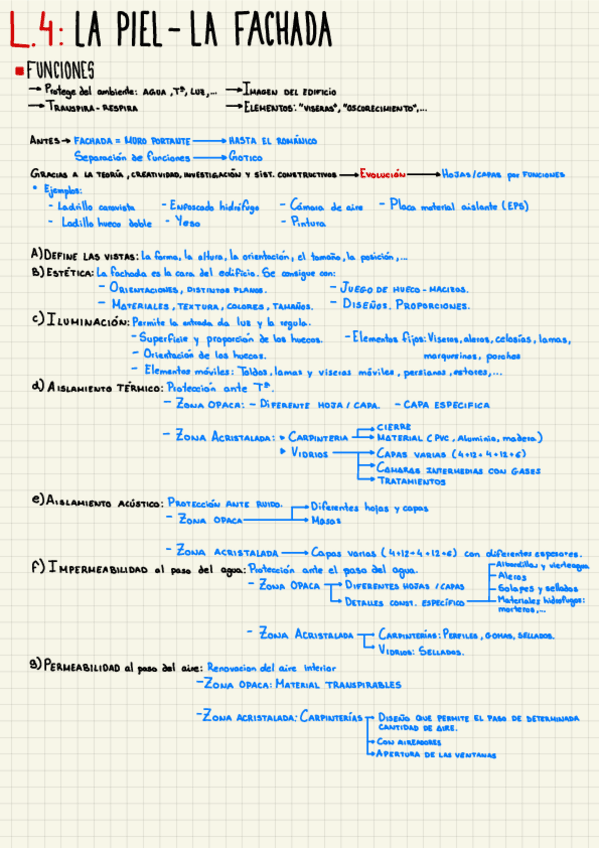 L.4: LA PIEL - LA FACHADA
FUNCIONES
→ Protege del ambiente: AGUA, Tª, LUZ,... → IMAGEN DEL EDIFICIO
→ TRANSPIRA - RESPIRA → ELEMENTOS: "VISERAS", "OSCURECIMIENTO",...
ANTES → FACHADA = MURO PORTANTE → HASTA EL ROMÁNICO
Separación de funciones → GÓTICO
GRACIAS A LA TEORÍA, CREATIVIDAD, INVESTIGACIÓN Y SIST. CONSTRUCTIVOS → EVOLUCIÓN → HOJAS/CAPAS por FUNCIONES
• Ejemplos:
- Ladrillo caravista - Enfoscado hidrófugo - Cámara de aire - Placa material aislante (EPS)
- Ladillo hueco doble - Yeso - Pintura
A) DEFINE LAS VISTAS: La forma, la altura, la orientación, el tamaño, la posición,...
B) ESTÉTICA: La fachada es la cara del edificio. Se consigue con:
- ORIENTACIONES, DISTINTOS PLANOS. - JUEGO DE HUECO - MACIZOS.
- MATERIALES, TEXTURA, COLORES, TAMAÑOS. - DISEÑOS. PROPORCIONES.
c) ILUMINACIÓN: Permite la entrada da luz y la regula.
- Superficie y proporción de los huecos. - Elementos fijos: Viseros, aleros, celosías, lamas,
- Orientación de los huecos. marquesinas, porches
- Elementos móviles: Toldos, lamas y viseras móviles, persianas, estores,...
d) AISLAMIENTO TÉRMICO: Protección ante Tª.
- ZONA OPACA: - DIFERENTE HOJA / CAPA. - CAPA ESPECIFICA
- ZONA ACRISTALADA: ▸ CARPINTERIA → CIERRE
→ MATERIAL (PVC, Aluminio, madera)
▸ VIDRIOS → CAPAS VARIAS (4+12+4+12+6)
→ CÁMARAS INTERMEDIAS CON GASES
→ TRATAMIENTOS
e) AISLAMIENTO ACÚSTICO: PROTECCIÓN ANTE RUIDO. → Diferentes hojas y capas
- ZONA OPACA → Masas
- ZONA ACRISTALADA → Capas varias (4+12+4+12+6) con diferentes espesores.
f) IMPERMEABILIDAD al paso del agua: Protección ante el paso del agua. → Albardillas y vierteagua
- ZONA OPACA → DIFERENTES HOJAS / CAPAS → Aleros
→ Solapes y sellados
→ DETALLES CONST. ESPECÍFICO → Materiales hidrofugos:
morteros,...
- ZONA ACRISTALADA → CARPINTERÍAS: PERFILES, GOMAS, SELLADOS.
→ VIDRIOS: SELLADOS.
g) PERMEABILIDAD al paso del aire: Renovacion del aire interior
- ZONA OPACA: MATERIAL TRANSPIRABLES
- ZONA ACRISTALADA: CARPINTERÍAS → DISEÑO QUE PERMITE EL PASO DE DETERMINADA
CANTIDAD DE AIRE.
→ CON AIREADORES
→ APERTURA DE LAS VENTANAS